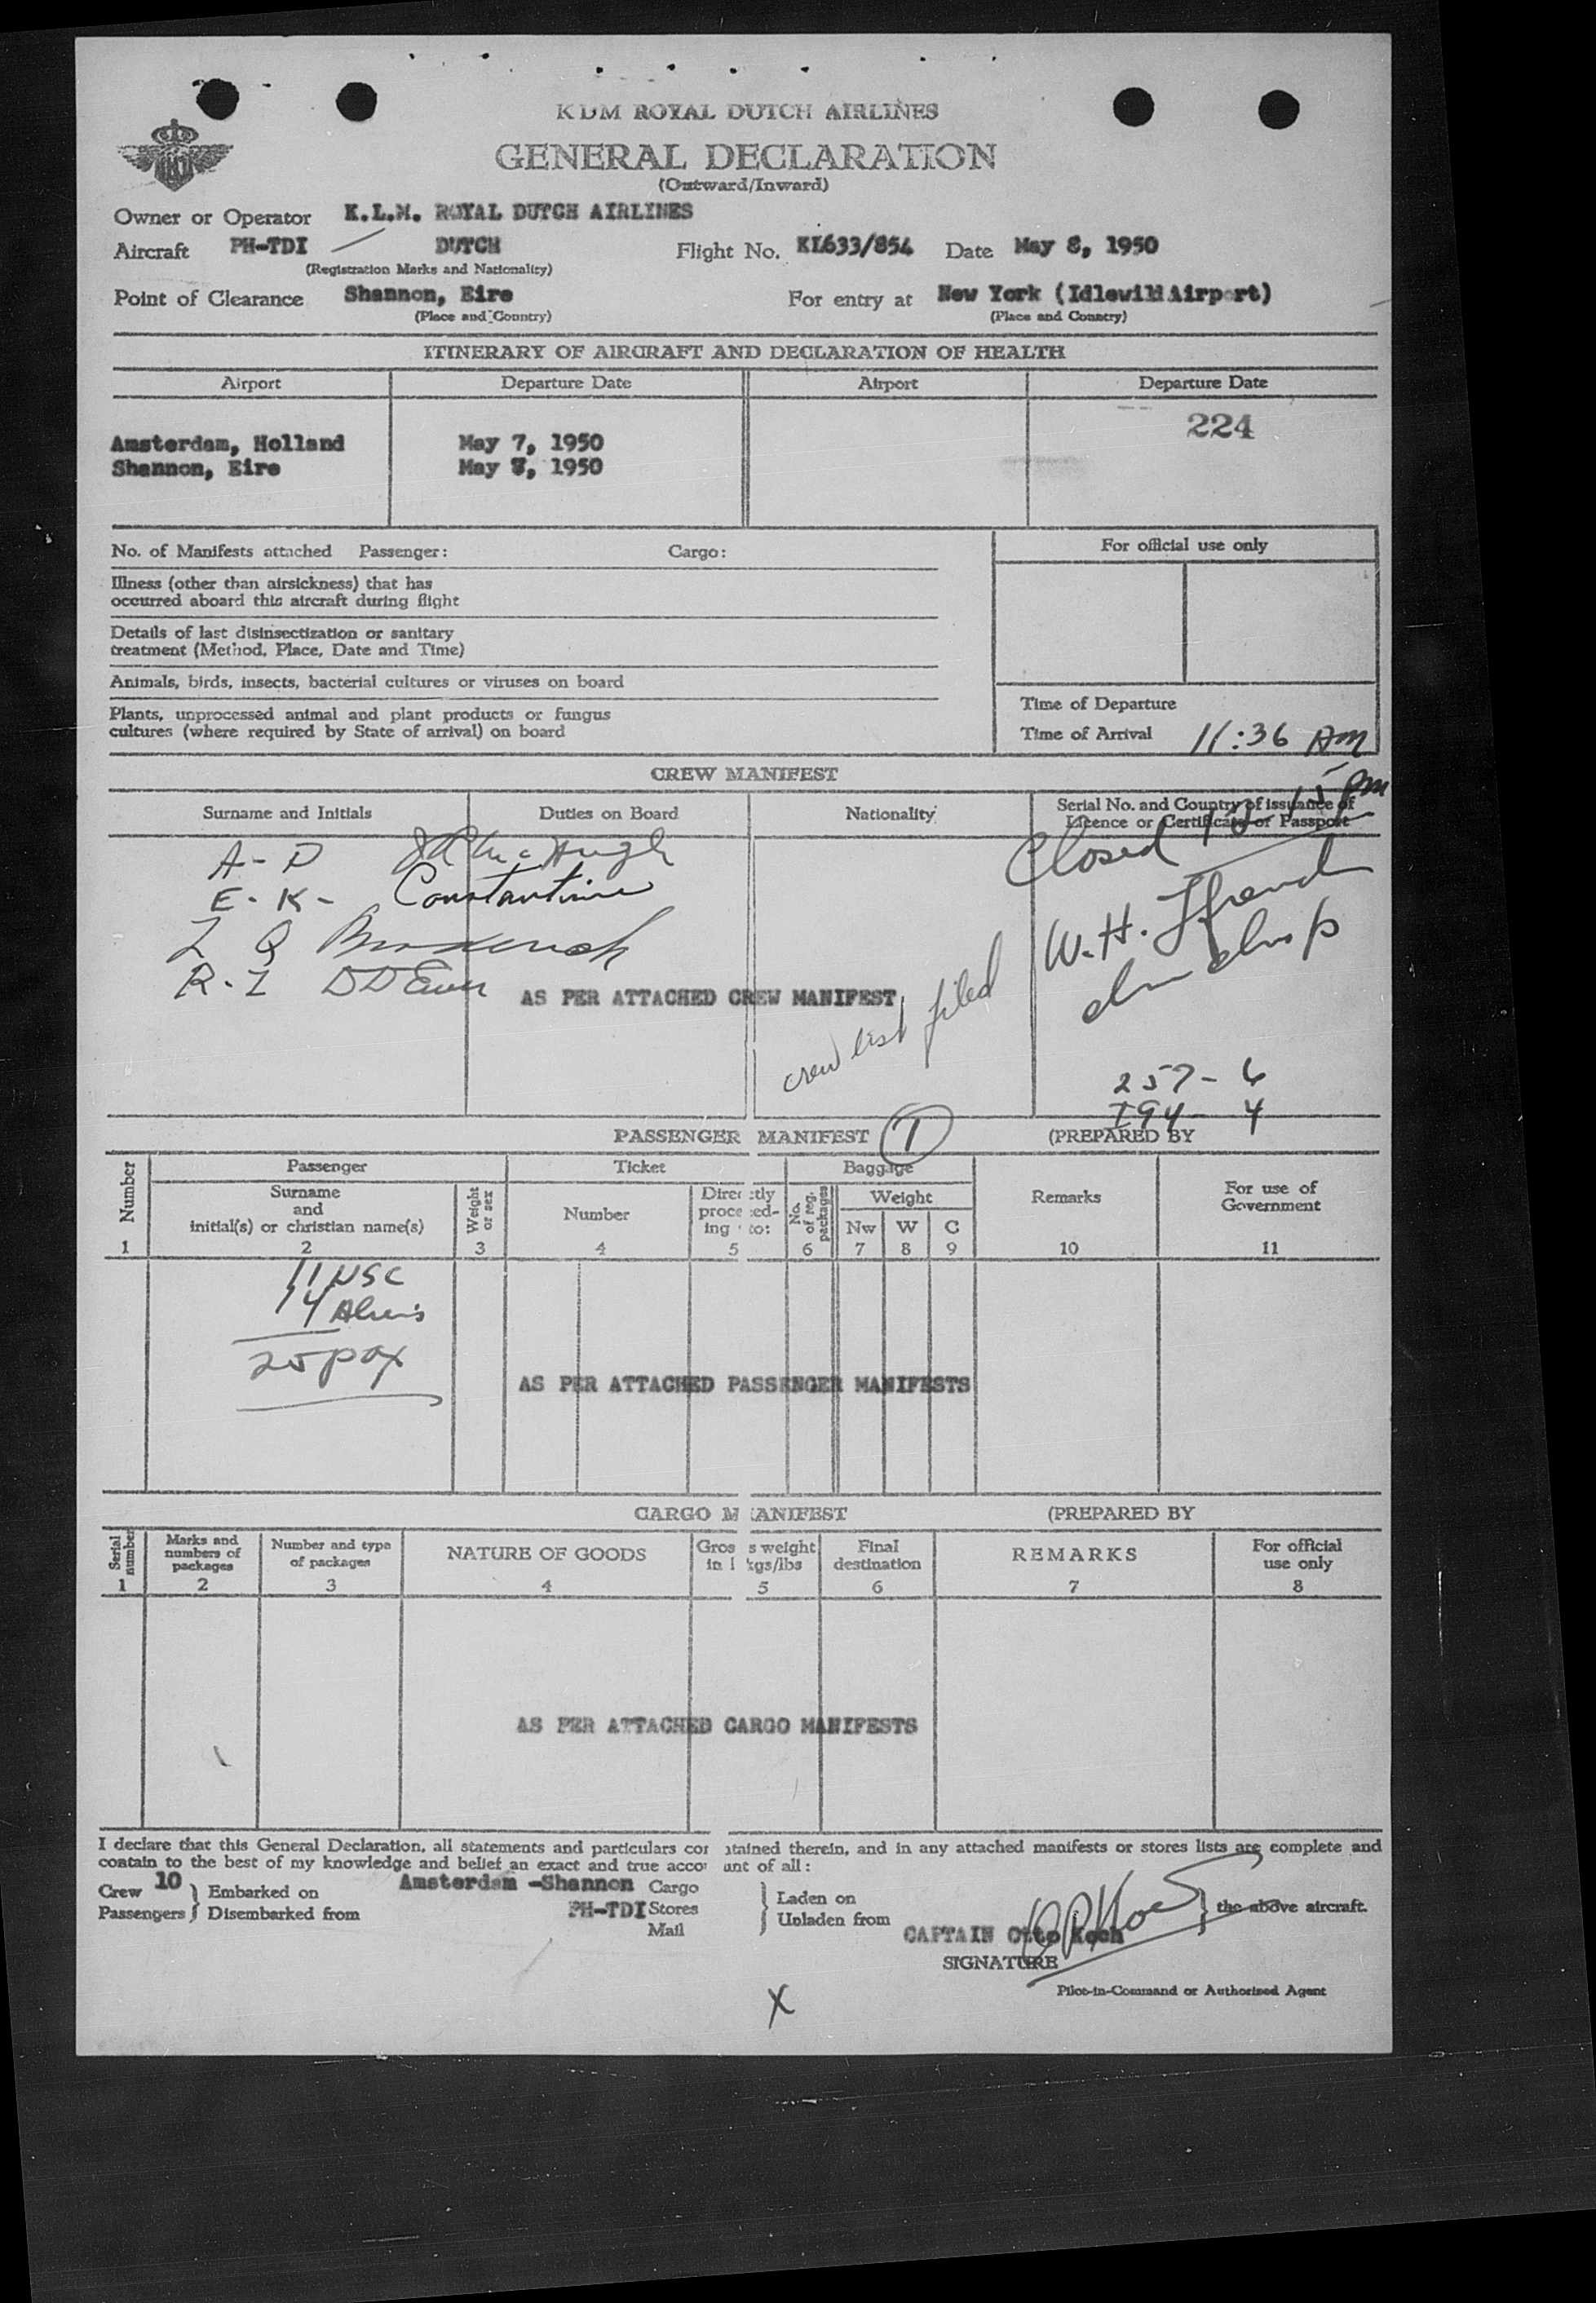 KLM ROYAL DUTCH AIRLINES
GENERAL DECLARATION
(Outward/Inward)
Owner or Operator K.L.M. ROYAL DUTCH AIRLINES
Aircraft PH-TDI / DUTCH Flight No. KL633/854 Date May 8, 1950
(Registration Marks and Nationality)
Point of Clearance Shannon, Eire For entry at New York (Idlewild Airport)
(Place and Country) (Place and Country)
ITINERARY OF AIRCRAFT AND DECLARATION OF HEALTH
Airport Departure Date Airport Departure Date
224
Amsterdam, Holland May 7, 1950
Shannon, Eire May 8, 1950
No. of Manifests attached Passenger: Cargo: For official use only
Illness (other than airsickness) that has
occurred aboard this aircraft during flight
Details of last disinsectization or sanitary
treatment (Method, Place, Date and Time)
Animals, birds, insects, bacterial cultures or viruses on board
Plants, unprocessed animal and plant products or fungus
cultures (where required by State of arrival) on board
Time of Departure
Time of Arrival 11:36 AM
CREW MANIFEST
Surname and Initials Duties on Board Nationality Serial No. and Country of issuance of
Licence or Certificate or Passport
Closed 12 15 pm
A - D
E - K - Constantine
L Q
R - Z
W. H.
AS PER ATTACHED CREW MANIFEST
crew list filed
257 - 6
I94 - 4
PASSENGER MANIFEST (PREPARED BY
Number Passenger Ticket Baggage Remarks For use of
Government
Surname
and
initial(s) or christian name(s)
Weight or sex Number Directly
proceed-
ing to:
No. of reg. packages Weight
Nw W C
1 2 3 4 5 6 7 8 9 10 11
11 USC
14 Aliens
25 pax
AS PER ATTACHED PASSENGER MANIFESTS
CARGO MANIFEST (PREPARED BY
Serial number Marks and
numbers of
packages
Number and type
of packages
NATURE OF GOODS Gross weight
in kgs/lbs
Final
destination
REMARKS For official
use only
1 2 3 4 5 6 7 8
AS PER ATTACHED CARGO MANIFESTS
I declare that this General Declaration, all statements and particulars contained therein, and in any attached manifests or stores lists are complete and
contain to the best of my knowledge and belief an exact and true account of all:
Crew 10 } Embarked on Amsterdam -Shannon Cargo } Laden on
Passengers } Disembarked from PH-TDI Stores } Unladen from } the above aircraft.
Mail
CAPTAIN Otto Koch
SIGNATURE
Pilot-in-Command or Authorized Agent
X